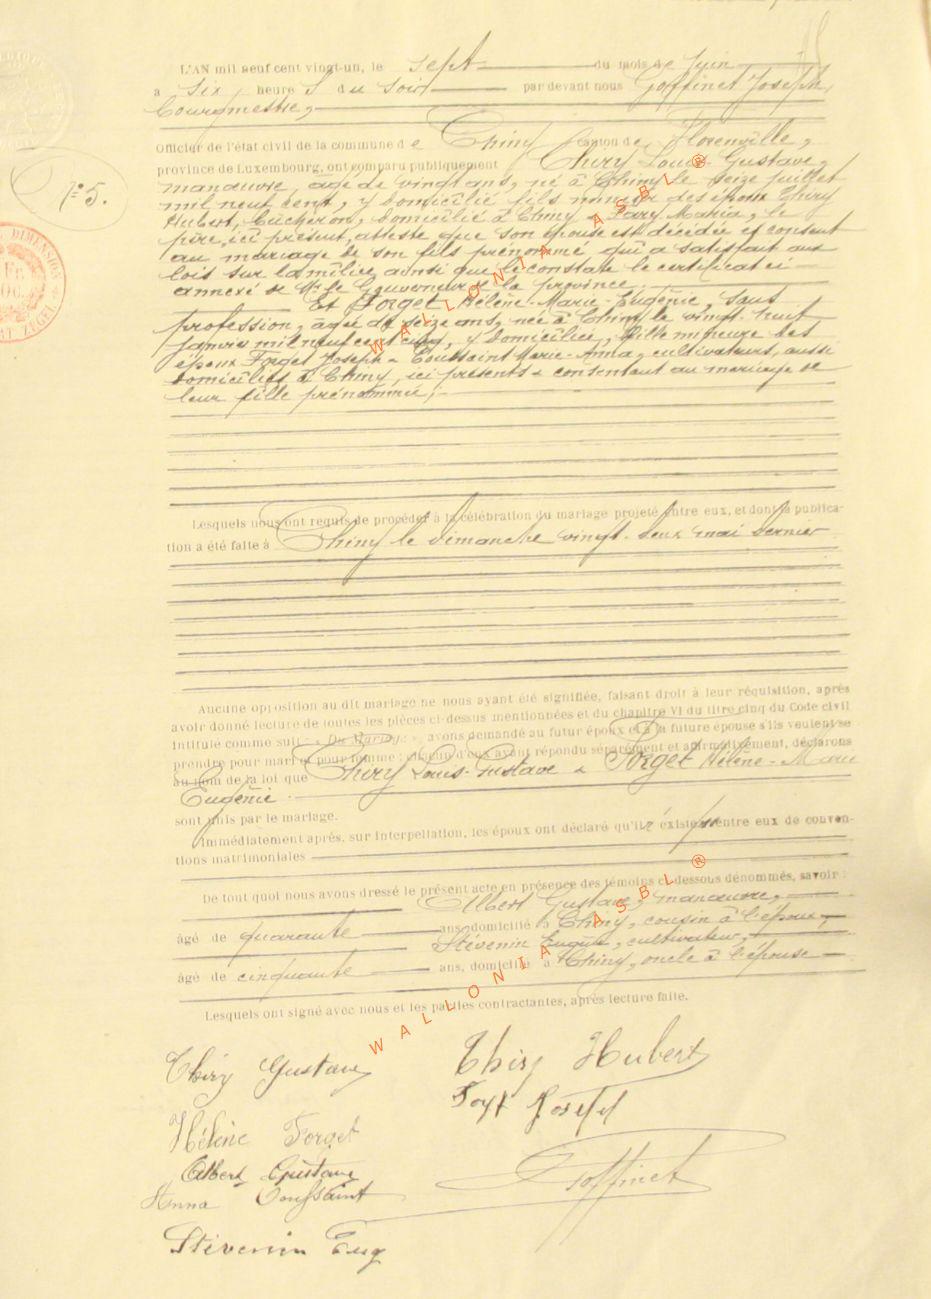 L'AN mil neuf cent vingt-un, le sept du mois de Juin
à six heures du soir par devant nous Goffinet Joseph,
Bourgmestre,
Officier de l'état civil de la commune de Chiny canton de Florenville,
province de Luxembourg, ont comparu publiquement Thiry Louis Gustave,
N° 5.
manœuvre, âgé de vingt ans, né à Chiny le seize juillet
mil neuf cent, y domicilié fils mineur des époux Thiry
Hubert, bûcheron, domicilié à Chiny & Maria, le
père, ici présent, atteste que son épouse est décédée et consent
au mariage de son fils prénommé qui a satisfait aux
lois sur la milice ainsi que le constate le certificat ci-
annexé de Mr le Gouverneur de la province,
Et Forget Hélène-Marie-Eugénie, sans
profession, âgée de seize ans, née à Chiny le vingt huit
janvier mil neuf cent cinq, y domiciliée, fille mineure des
époux Forget Joseph & Toussaint Marie-Anna, cultivateurs, aussi
domiciliés à Chiny, ici présents & consentant au mariage de
leur fille prénommée,
Lesquels nous ont requis de procéder à la célébration du mariage projeté entre eux, et dont la publica-
tion a été faite à Chiny le dimanche vingt-deux mai dernier
Aucune opposition au dit mariage ne nous ayant été signifiée, faisant droit à leur réquisition, après
avoir donné lecture de toutes les pièces ci-dessus mentionnées et du chapitre VI du titre cinq du Code civil
intitulé comme suit : « Du Mariage », avons demandé au futur époux et à la future épouse s'ils veulent se
prendre pour mari et pour femme ; chacun d'eux ayant répondu séparément et affirmativement, déclarons
au nom de la loi que Thiry Louis-Gustave & Forget Hélène-Marie
Eugénie
sont unis par le mariage.
Immédiatement après, sur interpellation, les époux ont déclaré qu'il existe entre eux de conven-
tions matrimoniales
De tout quoi nous avons dressé le présent acte en présence des témoins ci-dessous dénommés, savoir :
Albert Gustave, manœuvre,
âgé de quarante ans, domicilié à Chiny, cousin à l'époux,
Stévenin Eugène, cultivateur,
âgé de cinquante ans, domicilié à Chiny, oncle à l'épouse
Lesquels ont signé avec nous et les parties contractantes, après lecture faite.
Thiry Gustave
Thiry Hubert
Hélène Forget
Albert Gustave
Goffinet
Anna Toussaint
Stévenin Eug
WALLONIA ASBL ®
WALLONIA ASBL ®